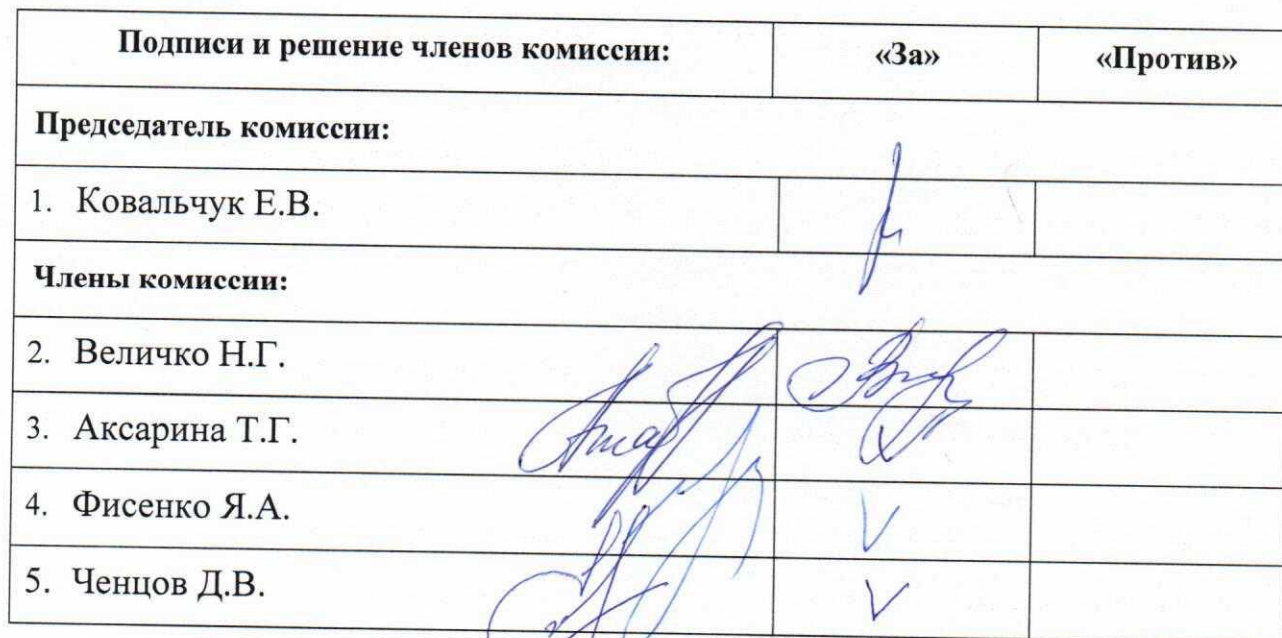 Подписи и решение членов комиссии: «За» «Против»
Председатель комиссии:
1. Ковальчук Е.В.
Члены комиссии:
2. Величко Н.Г.
3. Аксарина Т.Г.
4. Фисенко Я.А.
5. Ченцов Д.В.